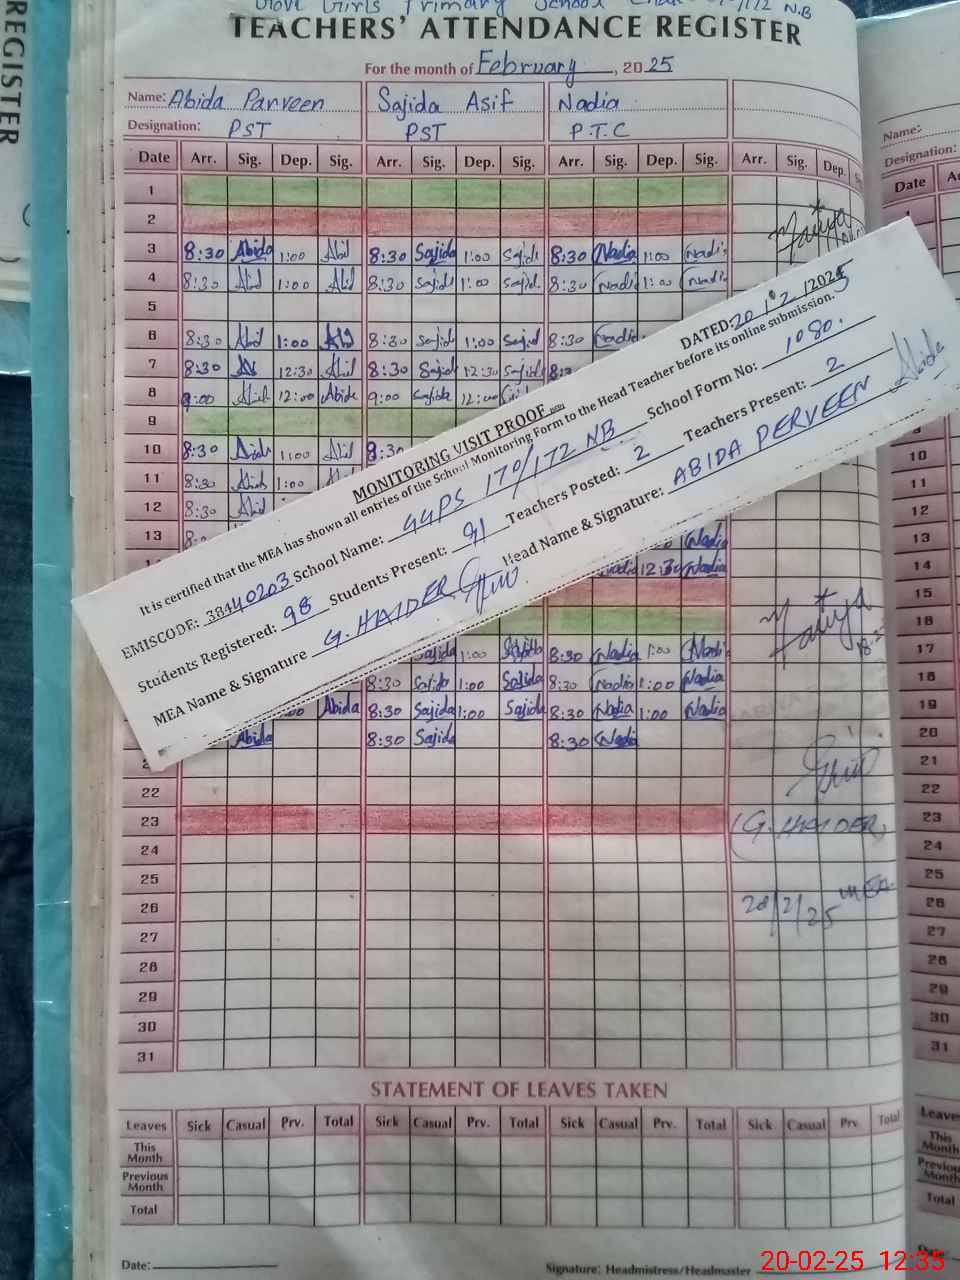 REGISTER
Govt Girls Primary School Chak 170/172 N.B
TEACHERS' ATTENDANCE REGISTER
For the month of February, 2025
Name: Abida Parveen Sajida Asif Nadia
Designation: PST PST P.T.C
Date Arr. Sig. Dep. Sig. Arr. Sig. Dep. Sig. Arr. Sig. Dep. Sig. Arr. Sig. Dep.
1
2
3 8:30 Abida 1:00 Abid 8:30 Sajida 1:00 Sajid 8:30 Nadia 1:00 Nadi
4 8:30 Abid 1:00 Abid 8:30 Sajid 1:00 Sajid 8:30 Nadi 1:00 Nadi
5
6 8:30 Abid 1:00 8:30 Sajid 1:00 Sajid 8:30 Nadia
7 8:30 12:30 Abid 8:30 Sajid 12:30 Sajid 8:3
8 9:00 Abid 12:00 Abida 9:00 Sajida 12:00
9
10 8:30 Abid 1:00 Abid 8:30
11 8:30 Abid 1:00
12 8:30 Abid
13 Nadia
Nadia 12:30 Nadia 14
15
16
Sajida 1:00 Sajida 8:30 Nadia 1:00 Nadi 17
8:30 Sajida 1:00 Sajida 8:30 Nadia 1:00 Nadia 18
Abida 8:30 Sajida 1:00 Sajida 8:30 Nadia 1:00 Nadia 19
Abida 8:30 Sajida 8:30 Nadia 20
21
22
23
24
25
26
27
28
29
30
31
MONITORING VISIT PROOF
DATED: 20/02/2025
It is certified that the MEA has shown all entries of the School Monitoring Form to the Head Teacher before its online submission.
EMISCODE: 38440203 School Name: GGPS 170/172 NB School Form No: 1080.
Students Registered: 98 Students Present: 91 Teachers Posted: 2 Teachers Present: 2
MEA Name & Signature G. HAIDER Head Name & Signature: ABIDA PERVEEN Abida
(G. HAIDER)
MEA
20/2/25
STATEMENT OF LEAVES TAKEN
Leaves Sick Casual Prv. Total Sick Casual Prv. Total Sick Casual Prv. Total Sick Casual Prv. Total
This Month
Previous Month
Total
Date:
Signature: Headmistress/Headmaster
Name:
Designation:
Date
10
11
12
13
14
15
16
17
18
19
20
21
22
23
24
25
26
27
28
29
30
31
Leaves
This Month
Previous Month
Total
20-02-25 12:35